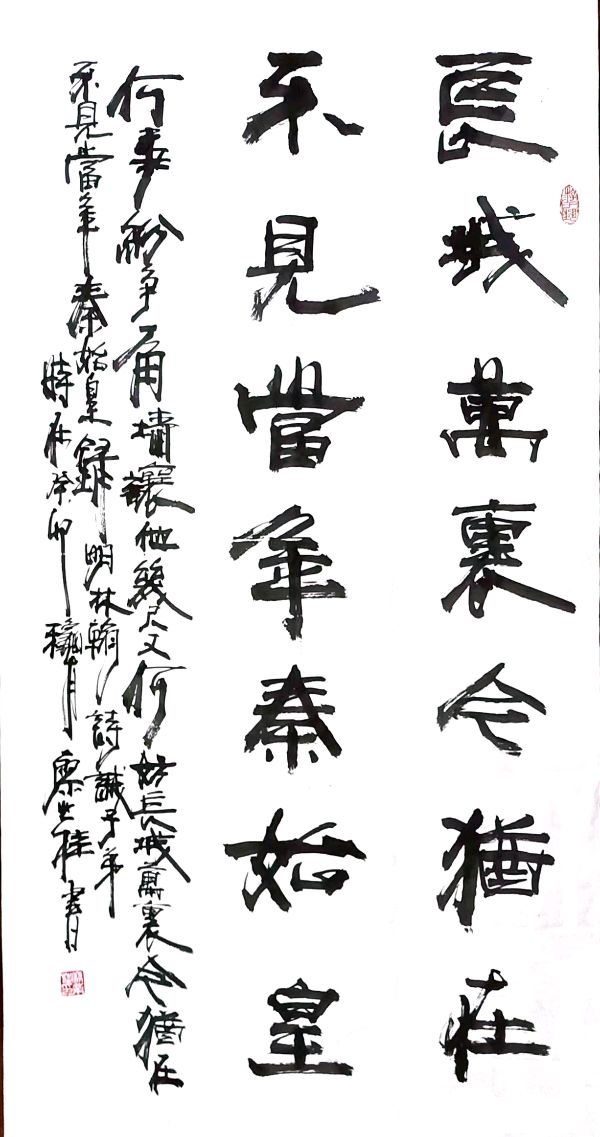 長城萬裏今猶在
不見當年秦始皇
何事紛爭一角墻讓他幾尺又何妨長城萬裏今猶在
不見當年秦始皇錄明林翰詩誡子弟
時在癸卯龝月廖世桂書